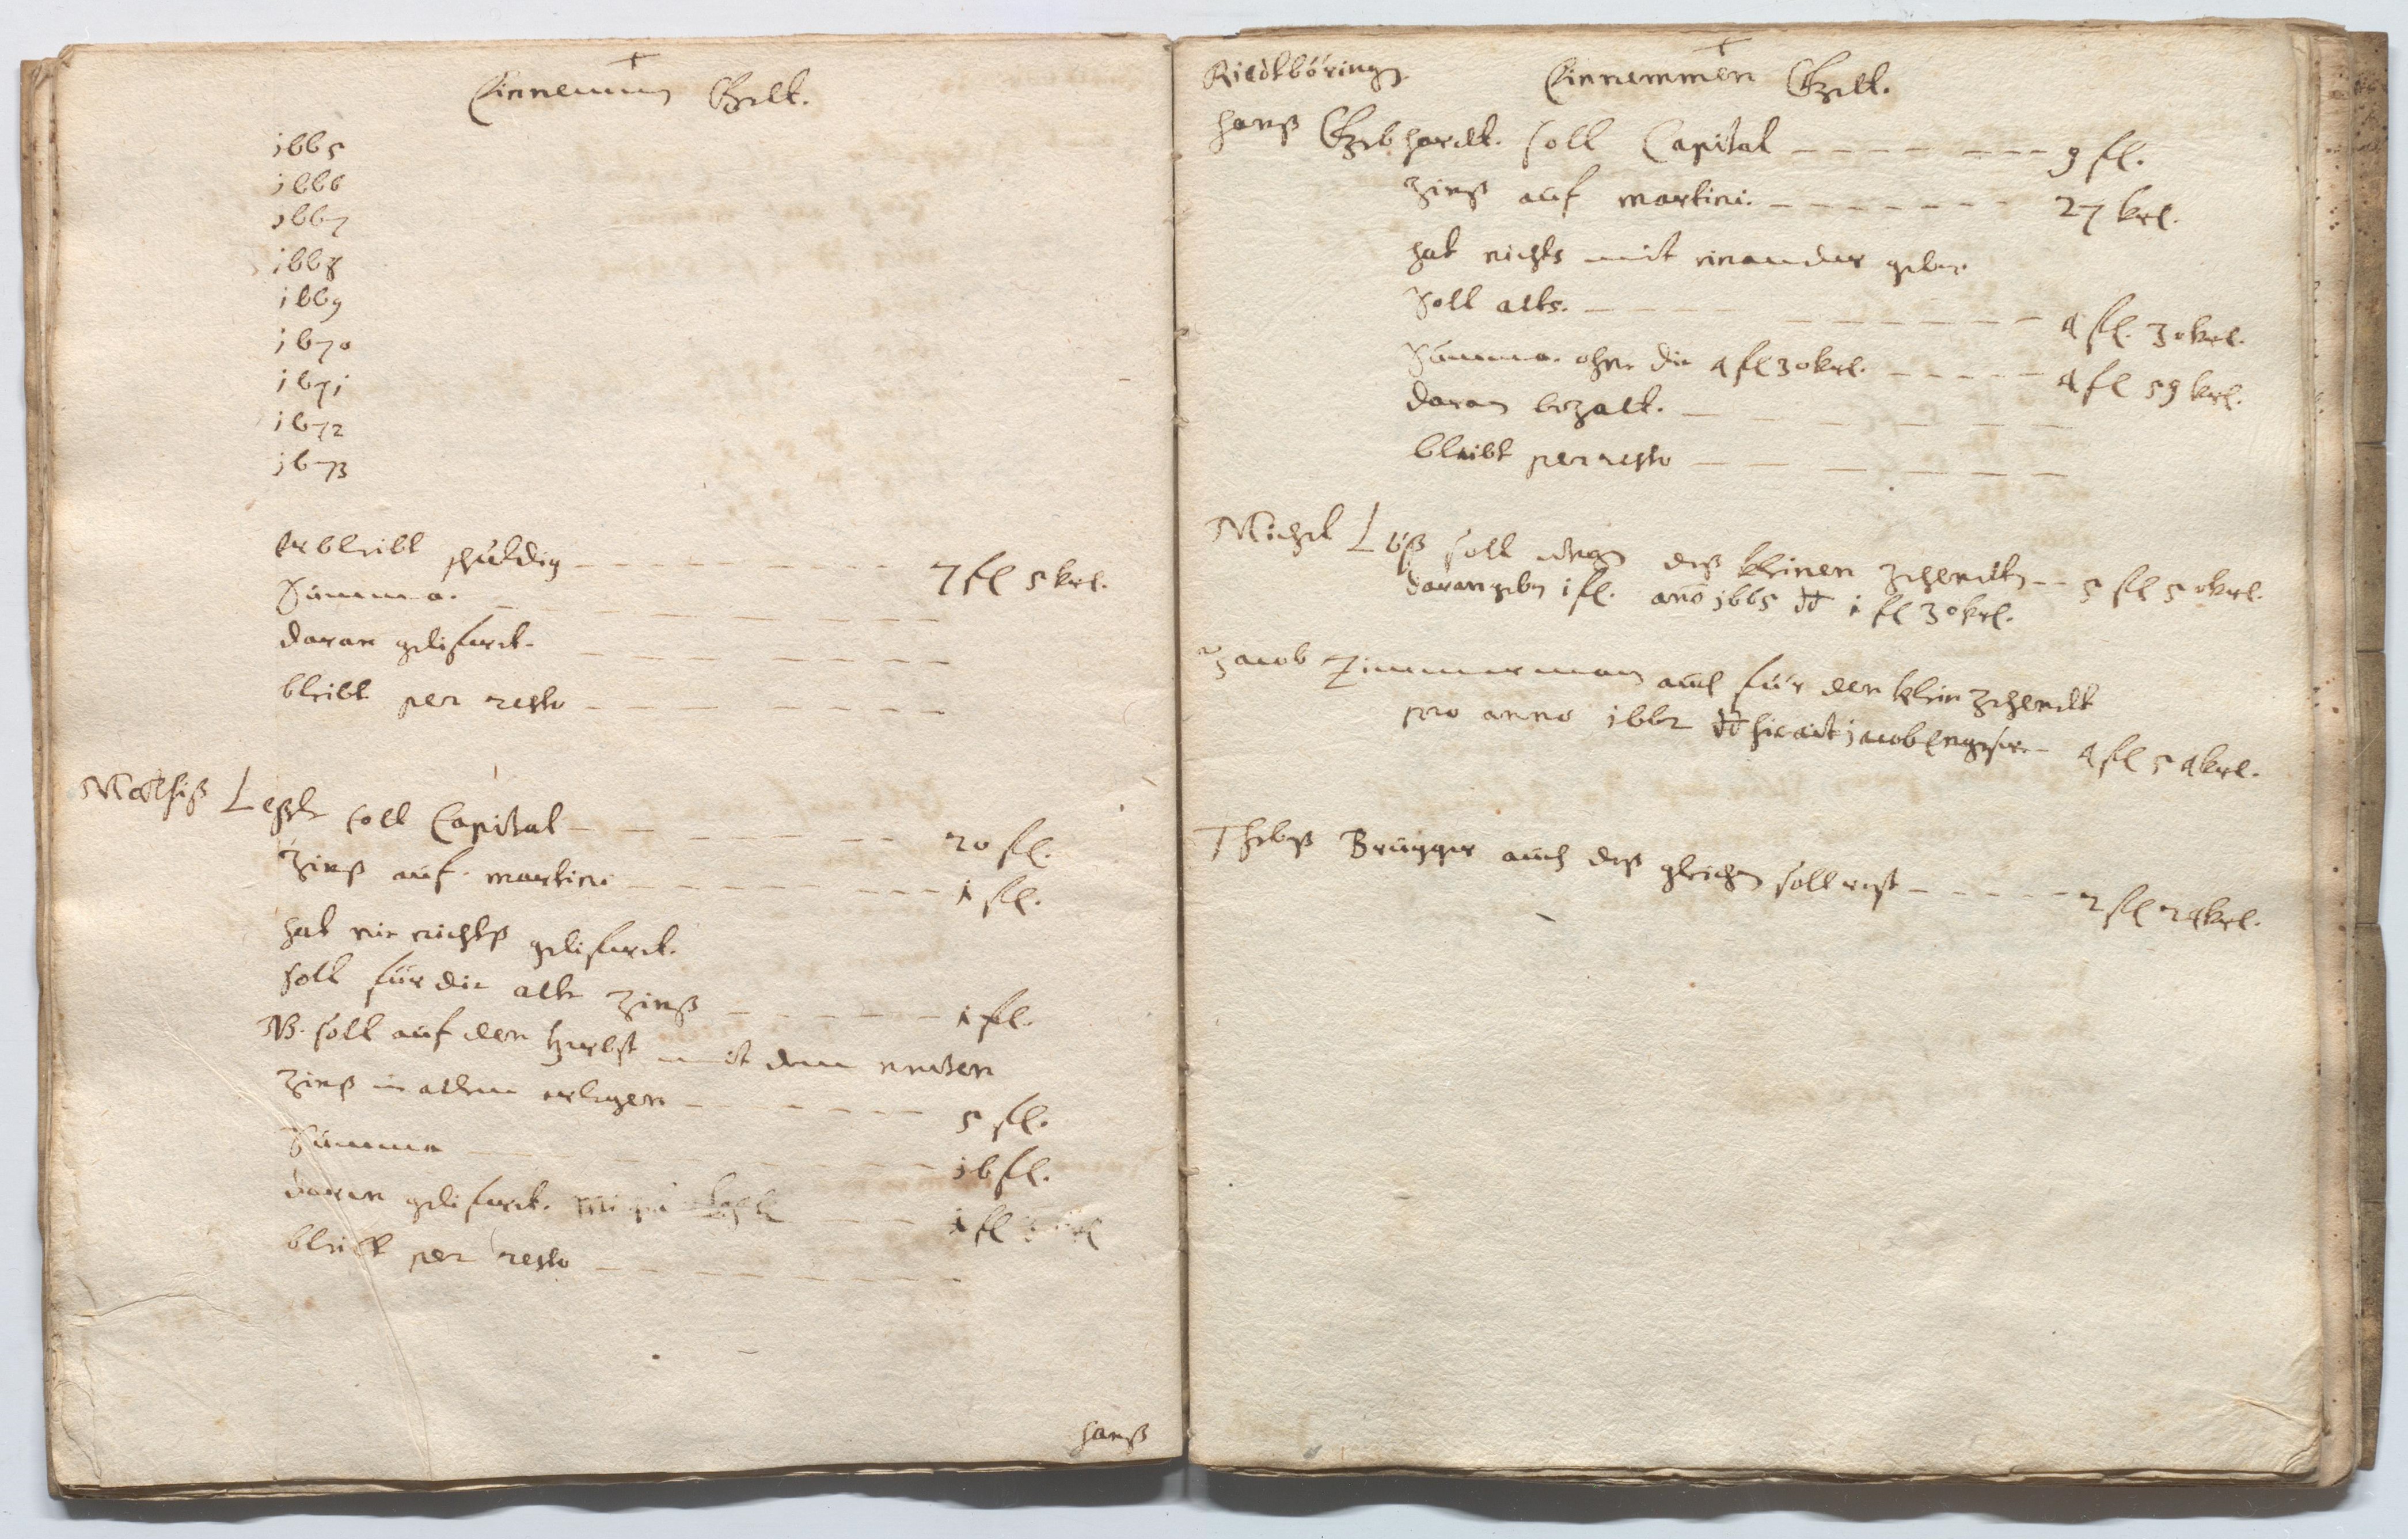 Einnemmen Gelt.
1665
1666
1667
1668
1669
1670
1671
1672
1673
er bleibt schuldig — 7 fl 5 krl.
Summa.
daran gelifert.
bleibt per resto
Mathiß soll Capital — 20 fl.
Zinß auf martini — 1 fl.
hat nie nichtß gelifert.
soll für die alte Zinß — 1 fl.
NB. soll auf den herbst mit dem
Zinß in allem erlegen — 5 fl.
Summa — 16 fl.
daran gelifert. — 1 fl
bleibt per resto
hanß
Riedtböringen Einnemmen Gelt.
hanß Gebhardt. soll Capital — 9 fl.
Zinß auf martini. — 27 krl.
hat nichts mit einander geben
Soll alts. — 4 fl. 30 krl.
Summa. ohne die 4 fl 30 krl. — 4 fl 59 krl.
daran bezalt.
bleibt per resto
Michel soll wegen deß kleinen Zehendten — 5 fl 50 krl.
daran geben 1 fl. ano 1665 dt 1 fl 30 krl.
Jacob Zimmerman auch für den klein Zehendt
pro anno 1662 dt jacob — 4 fl 54 krl.
Thebß Brugger auch deß gleichen soll rest — 2 fl 24 krl.